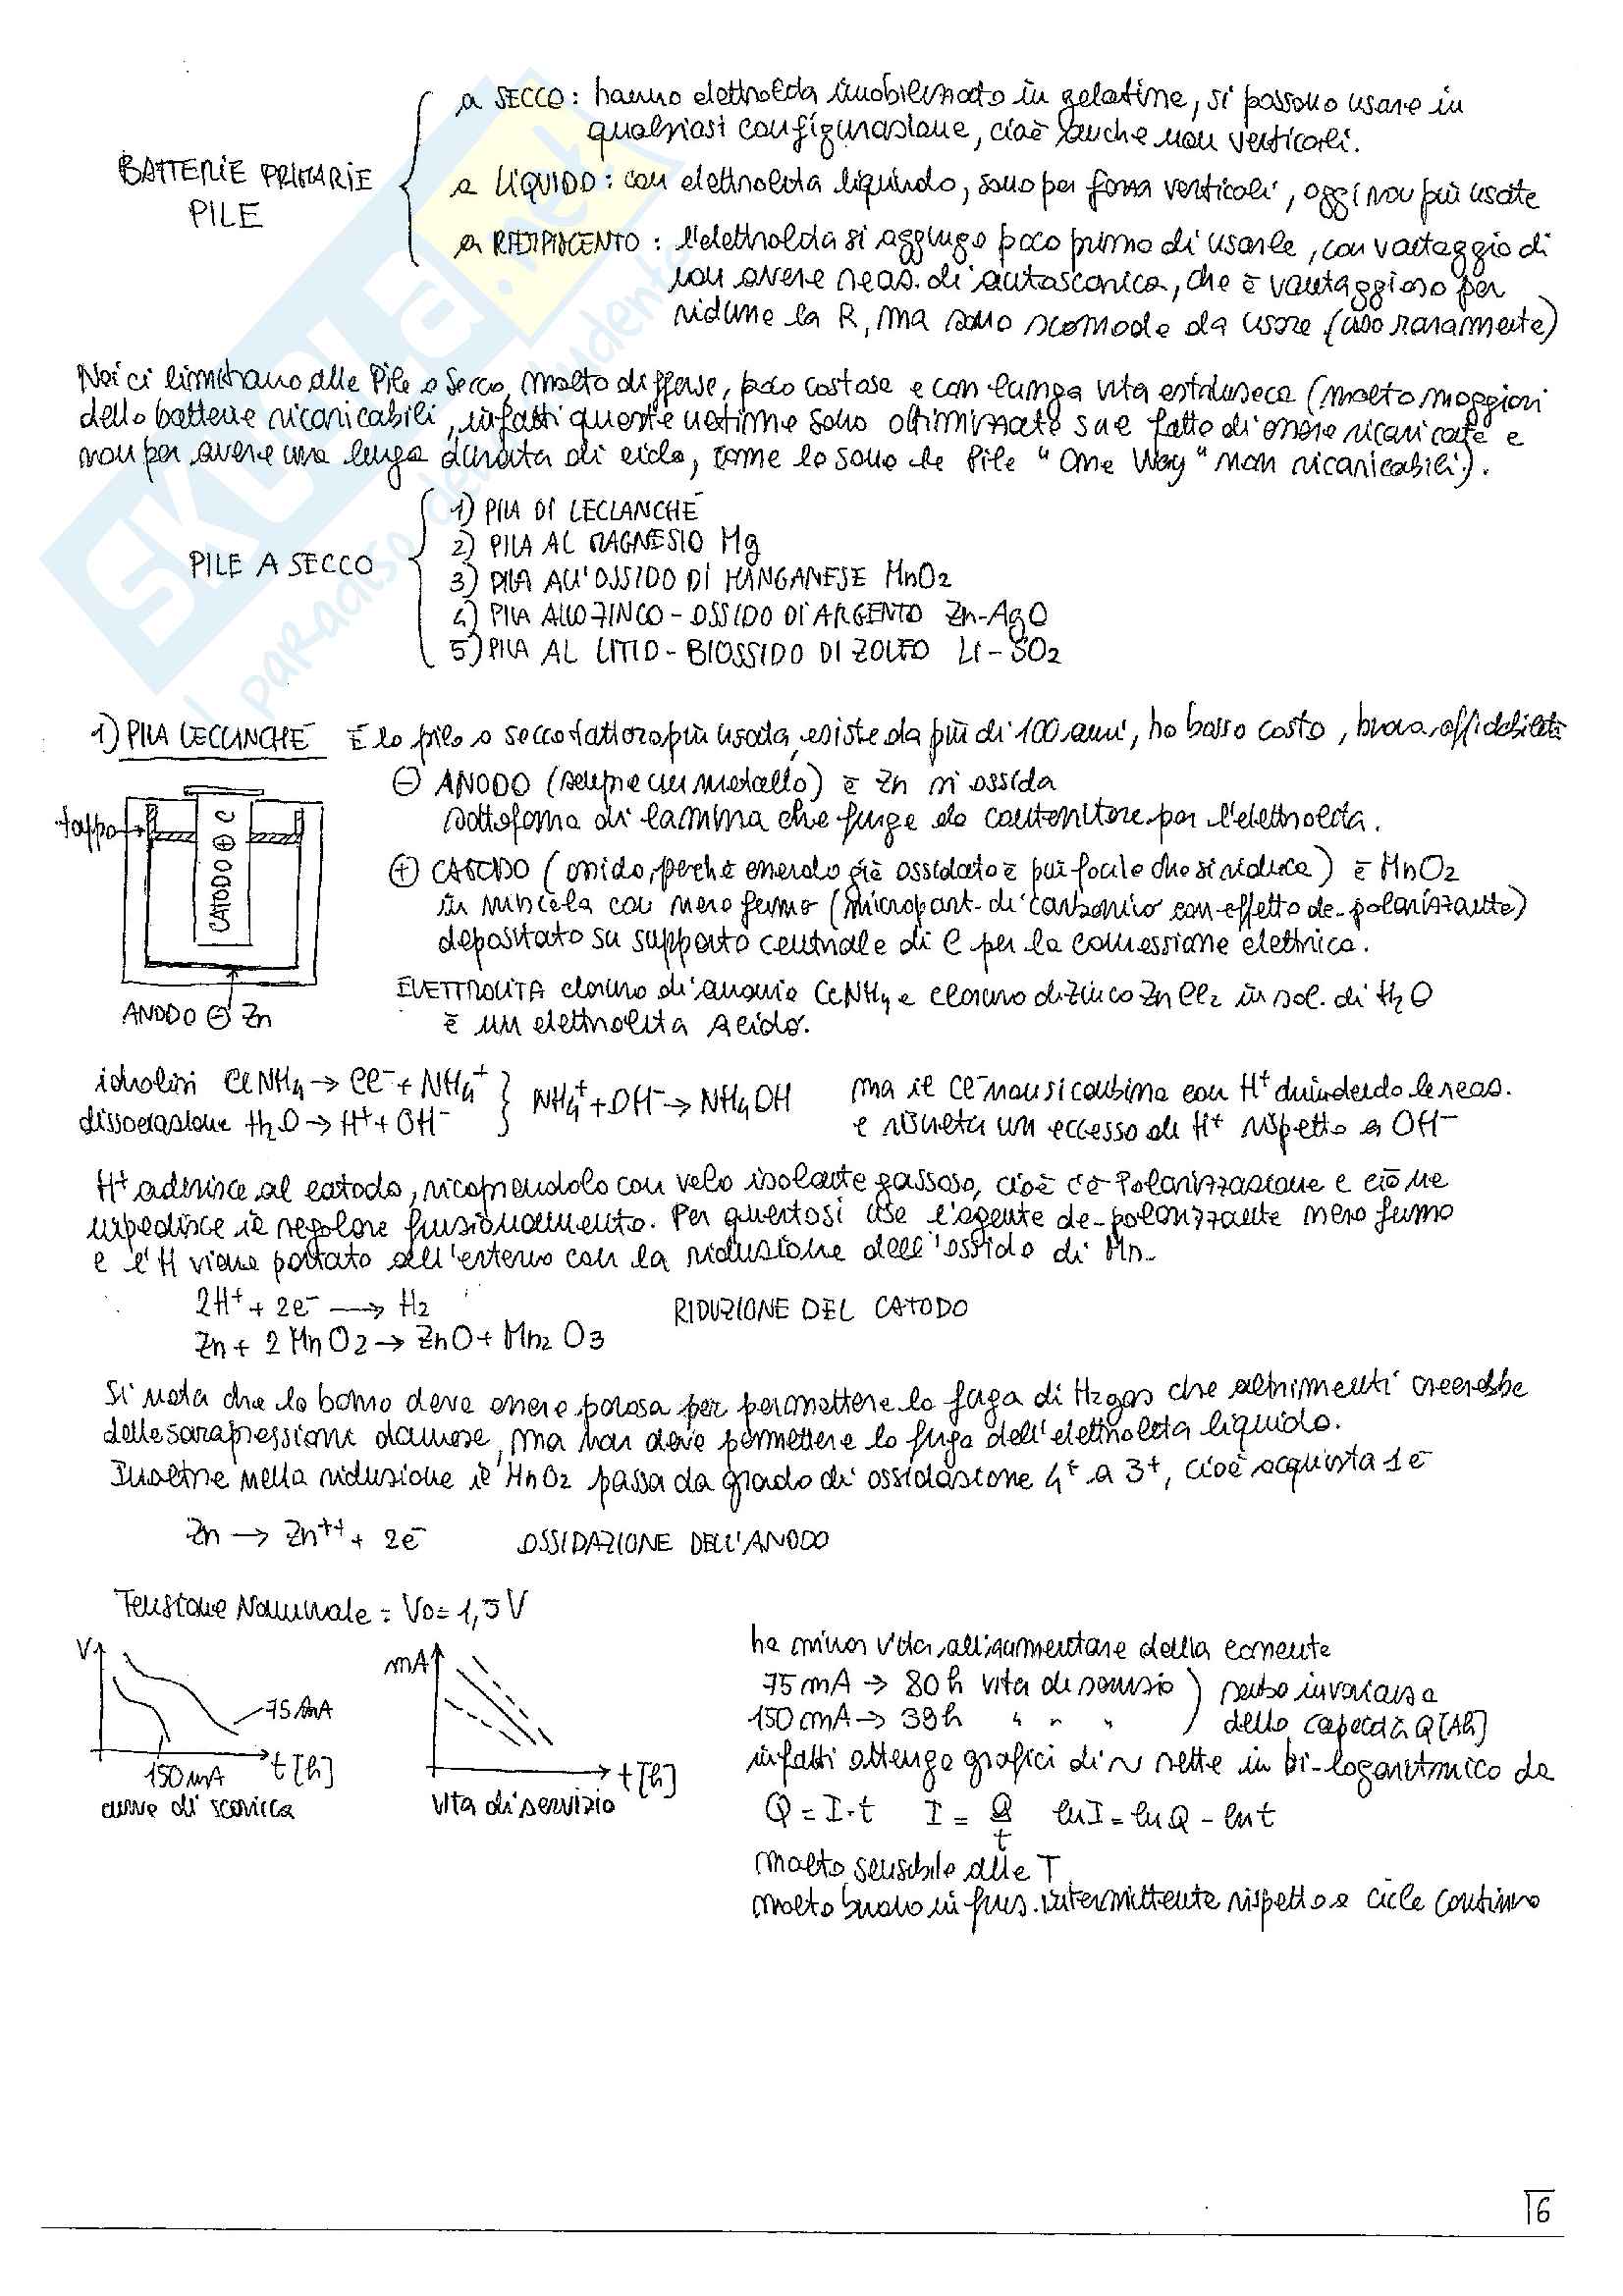 BATTERIE PRIMARIE
PILE
a SECCO: hanno elettrolita immobilizzato in gelatine, si possono usare in
qualsiasi configurazione, cioè anche non verticali.
a LIQUIDO: con elettrolita liquido, sono per forza verticali, oggi non più usate
a RIEMPIMENTO: l'elettrolita si aggiunge poco prima di usarle, con vantaggio di
non avere reaz. di autoscarica, che è vantaggioso per
ridurre la R, ma sono scomode da usare (uso raramente)
Noi ci limitiamo alle Pile a Secco, molto diffuse, poco costose e con lunga vita (molto maggiori
delle batterie ricaricabili, infatti queste ultime sono ottimizzate sul fatto di essere ricaricate e
non per avere una lunga durata di ciclo, come lo sono le Pile "One Way" non ricaricabili).
PILE A SECCO
1) PILA DI LECLANCHÉ
2) PILA AL MAGNESIO Mg
3) PILA ALL'OSSIDO DI MANGANESE MnO2
4) PILA ALLO ZINCO - OSSIDO DI ARGENTO Zn-AgO
5) PILA AL LITIO - BIOSSIDO DI ZOLFO Li-SO2
1) PILA LECLANCHÉ È la pila a secco tuttora più usata, esiste da più di 100 anni, ha basso costo, buona affidabilità
tappo
CATODO ⊕ C
ANODO ⊖ Zn
⊖ ANODO (sempre un metallo) è Zn si ossida
sottoforma di lamina che funge da contenitore per l'elettrolita.
⊕ CATODO (ossido, perché essendo già ossidato è più facile che si riduca) è MnO2
in miscela con nero fumo (micropart. di carbonio con effetto de-polarizzante)
depositato su supporto centrale di C per la connessione elettrica.
ELETTROLITA cloruro di ammonio ClNH4 e cloruro di Zinco ZnCl2 in sol. di H2O
è un elettrolita Acido.
idrolisi ClNH4 → Cl⁻ + NH4⁺
dissociazione H2O → H⁺ + OH⁻
NH4⁺ + OH⁻ → NH4OH
ma il Cl⁻ non si combina con H⁺ le reaz.
e risulta un eccesso di H⁺ rispetto a OH⁻
H⁺ aderisce al catodo, ricoprendolo con velo isolante gassoso, cioè c'è Polarizzazione e ciò ne
impedisce il regolare funzionamento. Per questo si usa l'agente de-polarizzante nero fumo
e l'H viene portato all'esterno con la riduzione dell'ossido di Mn.
2H⁺ + 2e⁻ → H2
RIDUZIONE DEL CATODO
Zn + 2MnO2 → ZnO + Mn2O3
Si nota che la deve essere porosa per permettere la fuga di H2 gas che altrimenti creerebbe
delle sovrapressioni dannose, ma non deve permettere la fuga dell'elettrolita liquido.
Inoltre nella riduzione il MnO2 passa da grado di ossidazione 4⁺ a 3⁺, cioè acquista 1 e⁻
Zn → Zn⁺⁺ + 2e⁻ OSSIDAZIONE DELL'ANODO
Tensione Nominale = V0 = 1,5 V
V
75 mA
150 mA
t [h]
curve di scarica
mA
t [h]
vita di servizio
ha minor vita all'aumentare della corrente
75 mA → 80 h vita di servizio
150 mA → 38 h " " "
invarianza
della capacità Q [Ah]
infatti ottengo grafici di ~ rette in bi-logaritmico da
Q = I·t I = Q/t lnI = lnQ - lnt
molto sensibile alle T
molto buono in funz. intermittente rispetto a ciclo continuo
16
SKUOLA.net
il paradiso dello studente